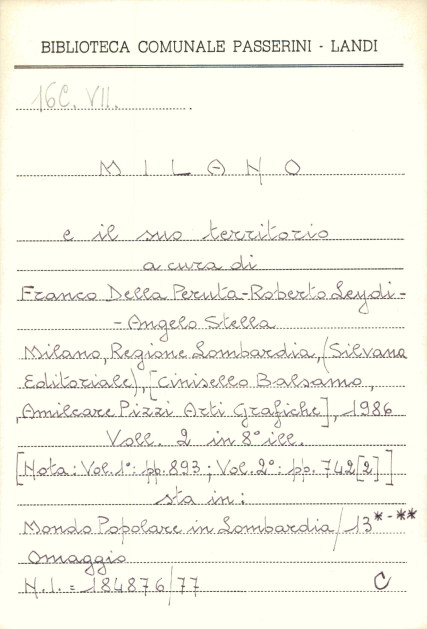 BIBLIOTECA COMUNALE PASSERINI - LANDI
16C. VII.
MILANO
e il suo territorio
a cura di
Franco Della Peruta-Roberto Leydi-
-Angelo Stella
Milano, Regione Lombardia, (Silvana
Editoriale), [Cinisello Balsamo,
Amilcare Pizzi Arti Grafiche], 1986
Voll. 2 in 8° ill.
[Nota: Vol. 1°: pp. 893; Vol. 2°: pp. 742[2]]
sta in:
Mondo Popolare in Lombardia/13*-**
Omaggio
N.I. = 184876/77 C